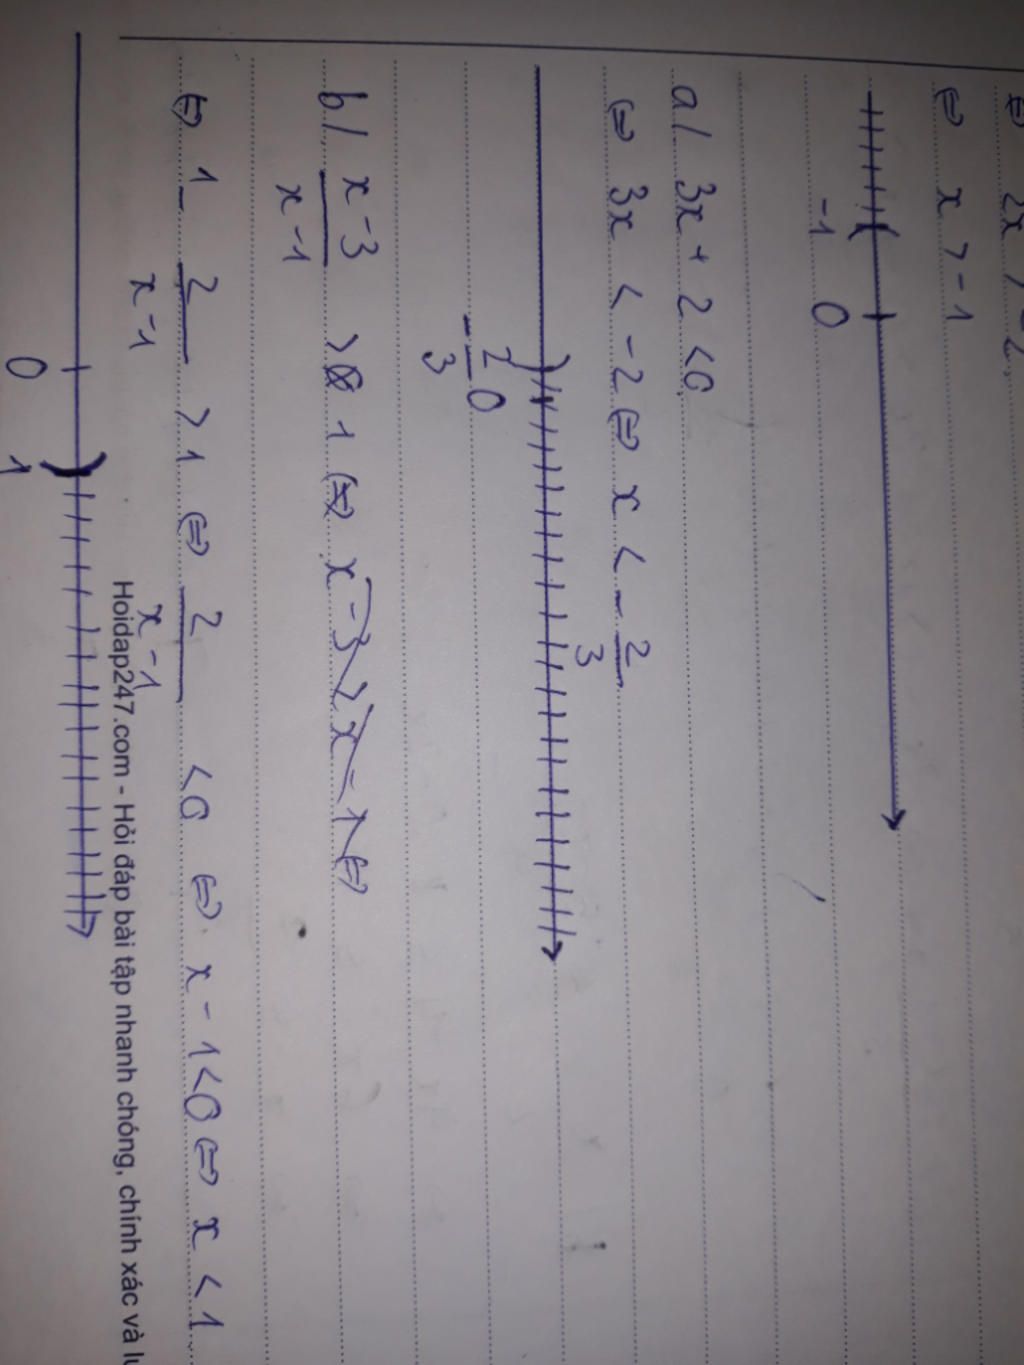 ⇔ 2x > -2
⇔ x > -1
-1 0
a/ 3x + 2 < 0
⇔ 3x < -2 ⇔ x < -2/3
-2/3 0
b/ (x-3)/(x-1) > 1 ⇔ x-3 > x-1 ⇔
⇔ 1 - 2/(x-1) > 1 ⇔ 2/(x-1) < 0 ⇔ x-1 < 0 ⇔ x < 1
Hoidap247.com - Hỏi đáp bài tập nhanh chóng, chính xác và
0 1